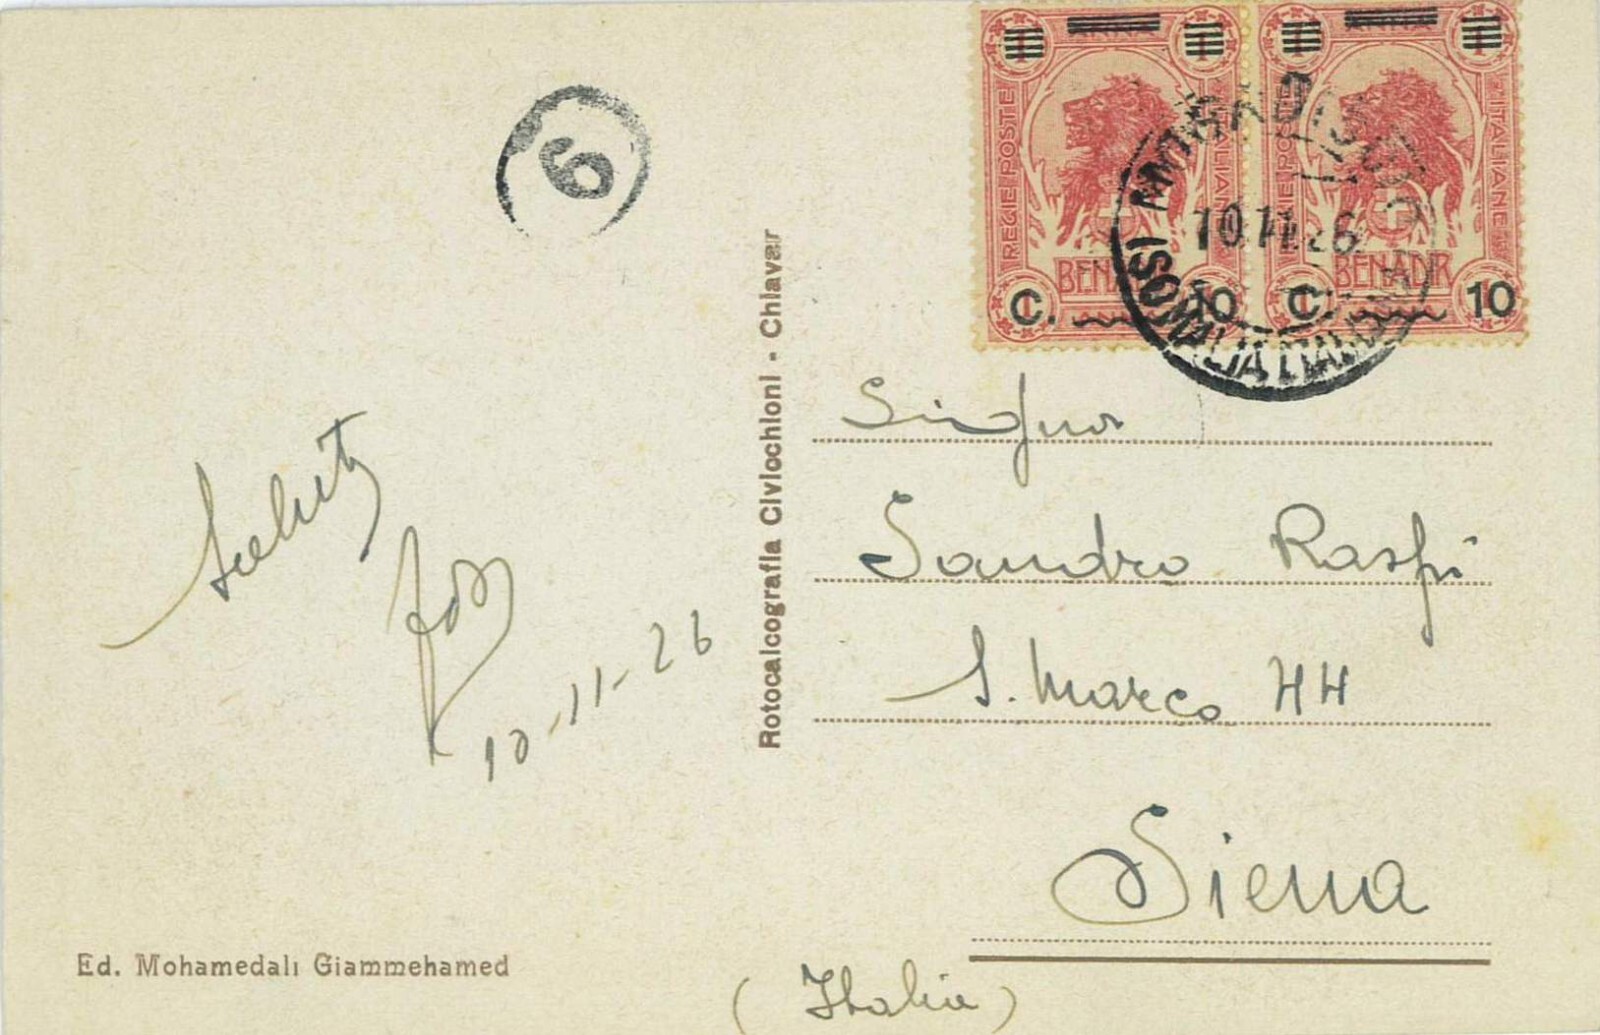 REGIE POSTE ITALIANE
BENADIR
C. 10
REGIE POSTE ITALIANE
BENADIR
C. 10
MOGADISCIO
10.11.26
(SOMALIA ITALIANA)
6
Saluti
10-11-26
Rotocalcografia Civicchioni - Chiavar
Signor
Sandro Raspi
S. Marco 44
Siena
(Italia)
Ed. Mohamedali Giammehamed